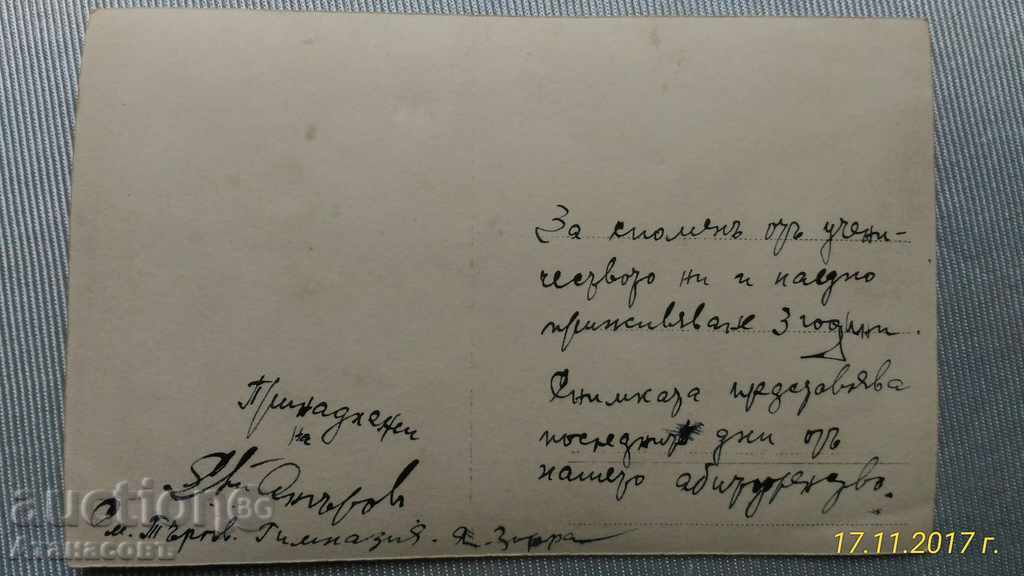 За споменъ отъ учени-
чеството ни и наедно
приживяване 3 години.
Снимката представлява
последнитѣ дни отъ
нашето абитуренство.
Принадлежи
на
Ст. Търгов. Гимназия. Зора
auctionBG
Атанасовъ
17.11.2017 г.